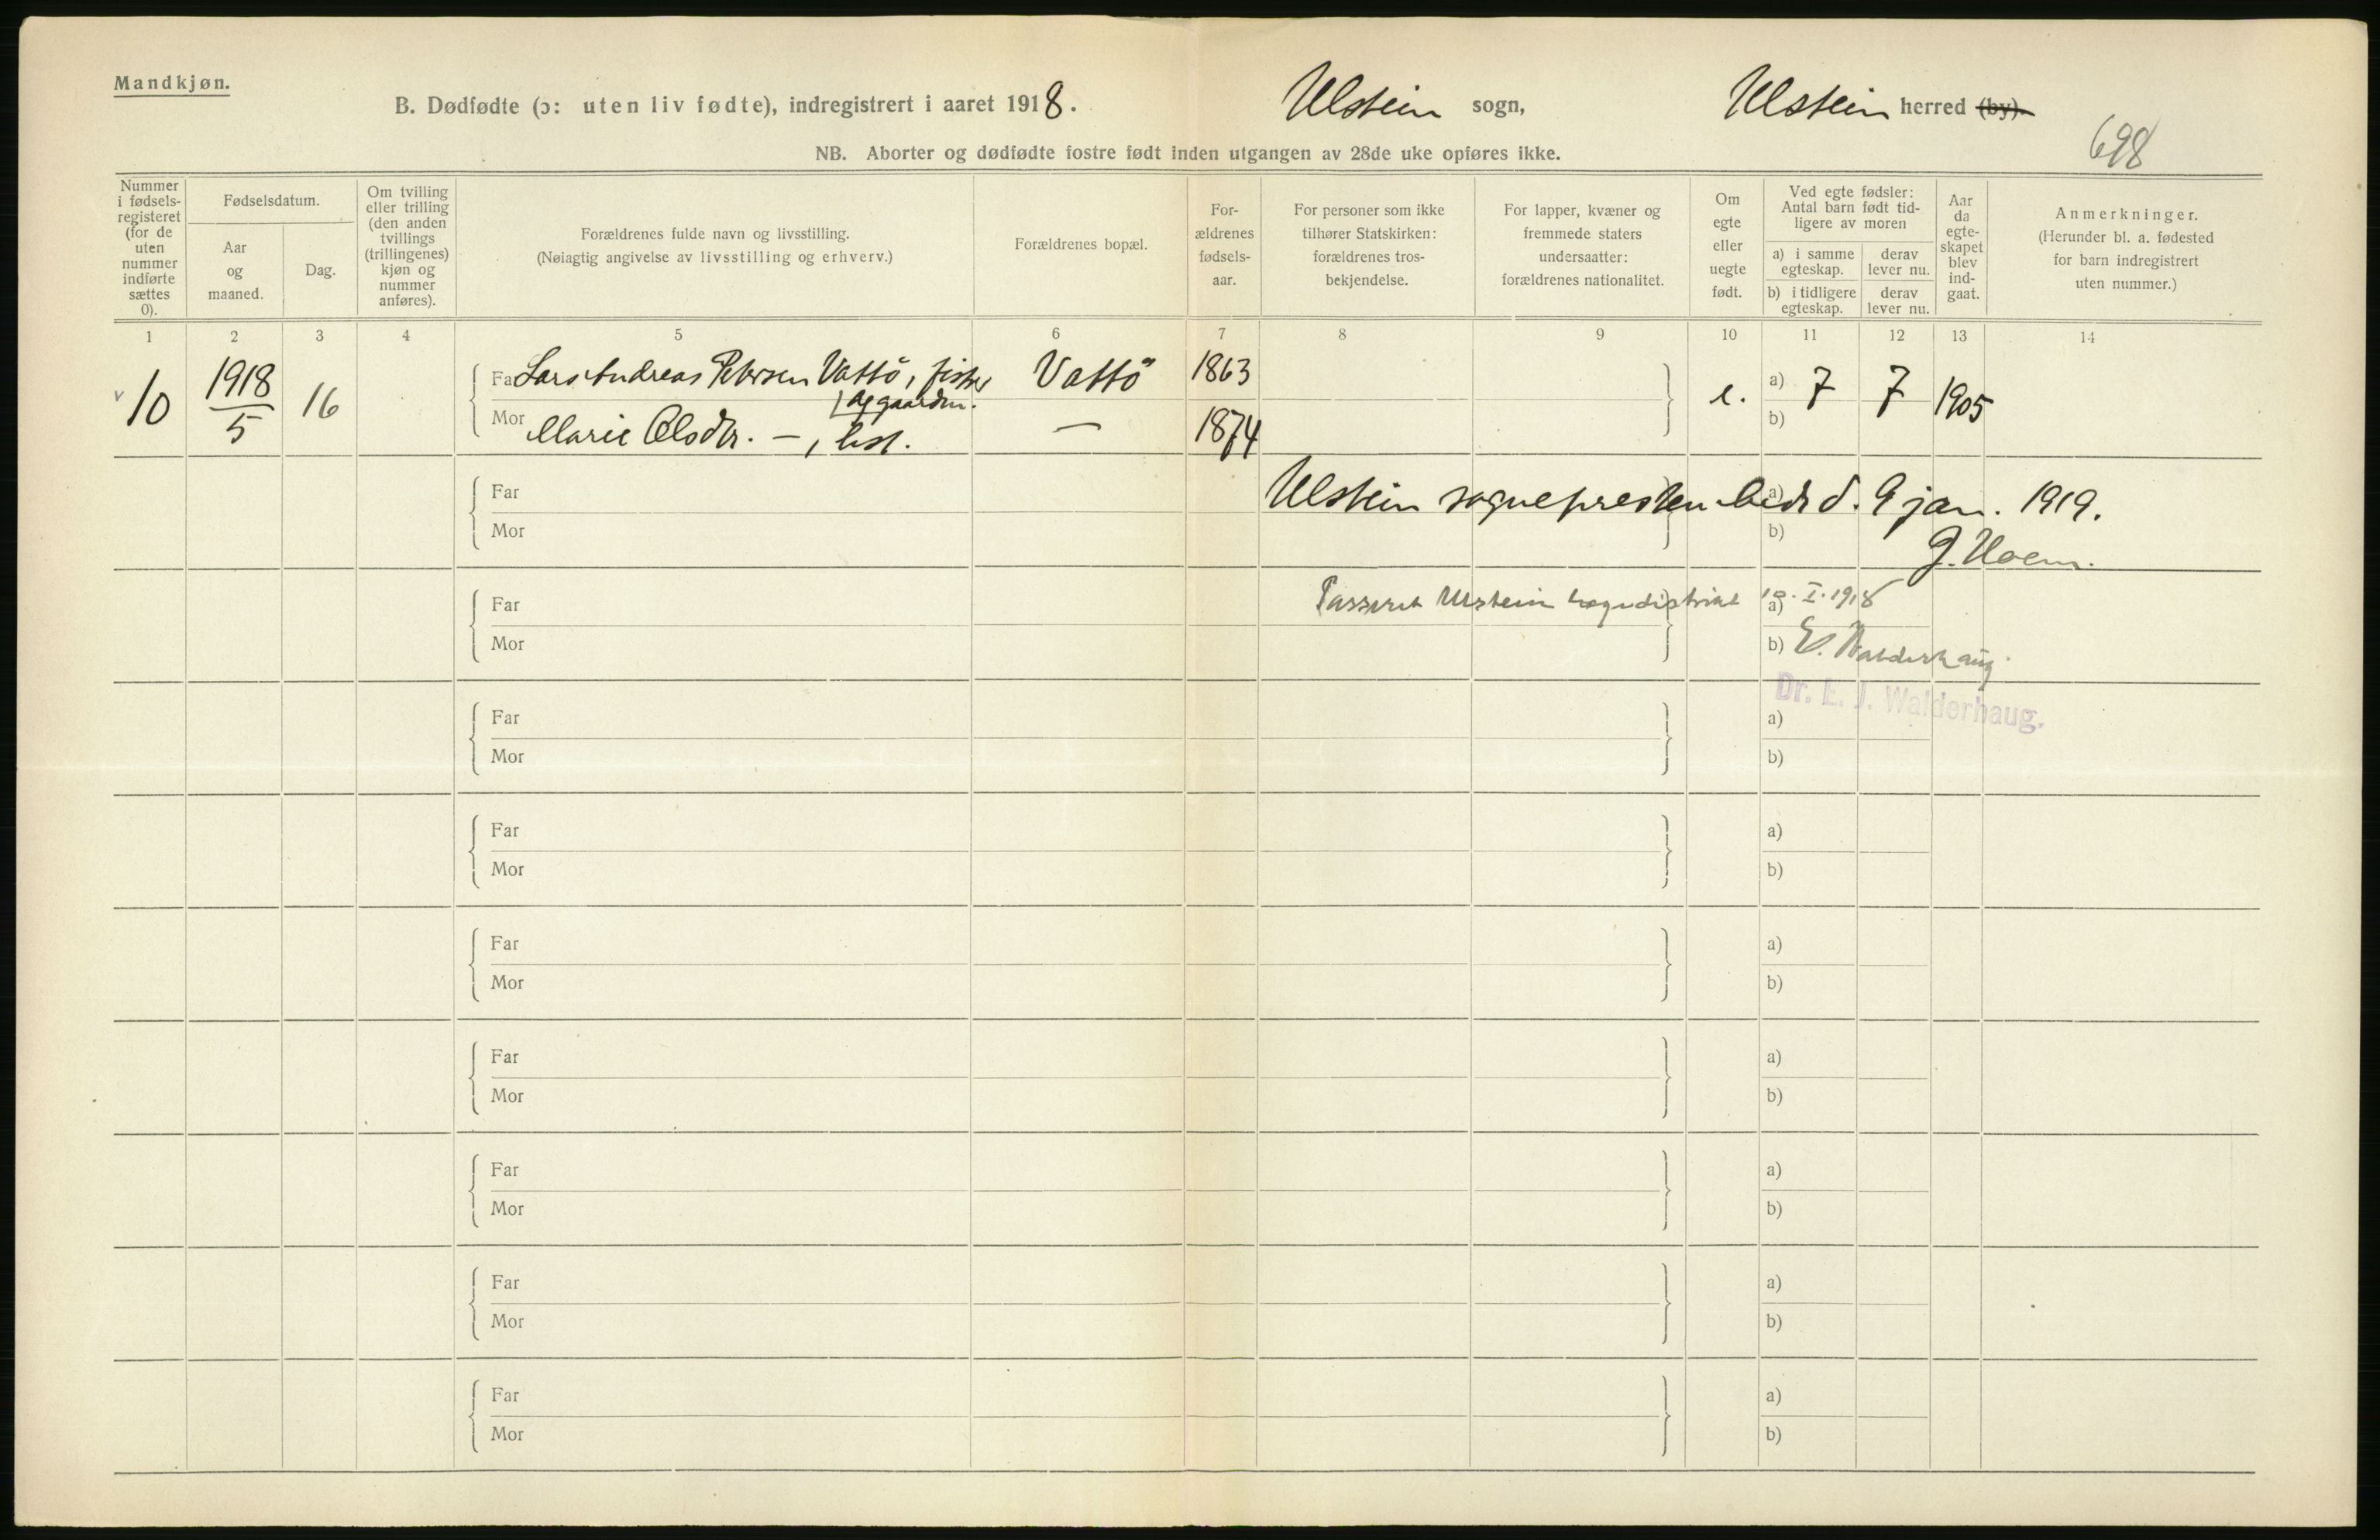 Mandkjøn.
B. Dødfødte (ɔ: uten liv fødte), indregistrert i aaret 1918. Ulstein sogn, Ulstein herred (by).
698
NB. Aborter og dødfødte fostre født inden utgangen av 28de uke opføres ikke.
Nummer i fødsels-registeret (for de uten nummer indførte sættes 0).
Fødselsdatum.
Aar og maaned.
Dag.
Om tvilling eller trilling (den anden tvillings (trillingenes) kjøn og nummer anføres).
Forældrenes fulde navn og livsstilling.
(Nøiagtig angivelse av livsstilling og erhverv.)
Forældrenes bopæl.
For-ældrenes fødsels-aar.
For personer som ikke tilhører Statskirken: forældrenes tros-bekjendelse.
For lapper, kvæner og fremmede staters undersaatter: forældrenes nationalitet.
Om egte eller uegte født.
Ved egte fødsler: Antal barn født tid-ligere av moren
a) i samme egteskap. derav lever nu.
b) i tidligere egteskap. derav lever nu.
Aar da egte-skapet blev ind-gaat.
Anmerkninger.
(Herunder bl. a. fødested for barn indregistrert uten nummer.)
1 2 3 4 5 6 7 8 9 10 11 12 13 14
v 10 1918/5 16 Far Lars Andreas Petersen Vattö, fisker Vattö 1863 e. a) 7 7 1905
/ og gaardm.
Mor Marie Olsdtr. — , hst. — 1874 b)
Far Ulstein sogneprestembede d. 9 jan. 1919. a)
Mor b)
J. Hoem.
Far Passeret Ulstein lægedistrikt 10. I. 1918 a)
Mor b) E. Walderhaug
Dr. E. J. Walderhaug.
Far a)
Mor b)
Far a)
Mor b)
Far a)
Mor b)
Far a)
Mor b)
Far a)
Mor b)
Far a)
Mor b)
Far a)
Mor b)